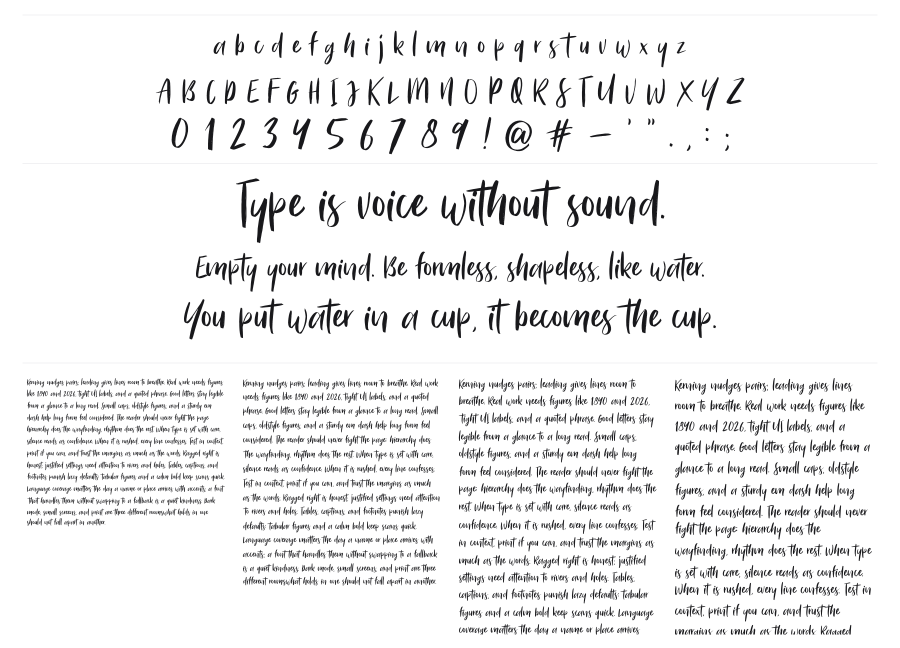 a b c d e f g h i j k l m n o p q r s t u v w x y z
A B C D E F G H I J K L M N O P Q R S T U V W X Y Z
0 1 2 3 4 5 6 7 8 9 ! @ # – ' " . , : ;
Type is voice without sound.
Empty your mind. Be formless, shapeless, like water.
You put water in a cup, it becomes the cup.
Kerning nudges pairs; leading gives lines room to breathe. Real work needs figures
like 1890 and 2026, tight UI labels, and a quoted phrase. Good letters stay legible
from a glance to a long read. Small caps, oldstyle figures, and a sturdy em
dash help long form feel considered. The reader should never fight the page:
hierarchy does the wayfinding, rhythm does the rest. When type is set with care,
silence reads as confidence. When it is rushed, every line confesses. Test in context,
print if you can, and trust the margins as much as the words. Ragged right is
honest; justified settings need attention to rivers and holes. Tables, captions, and
footnotes punish lazy defaults; tabular figures and a calm bold keep scans quick.
Language coverage matters the day a name or place arrives with accents; a font
that handles them without swapping to a fallback is a quiet kindness. Dark
mode, small screens, and print are three different rooms; what holds in one
should not fall apart in another.
Kerning nudges pairs; leading gives lines room to breathe. Real work
needs figures like 1890 and 2026, tight UI labels, and a quoted
phrase. Good letters stay legible from a glance to a long read. Small
caps, oldstyle figures, and a sturdy em dash help long form feel
considered. The reader should never fight the page: hierarchy does
the wayfinding, rhythm does the rest. When type is set with care,
silence reads as confidence. When it is rushed, every line confesses.
Test in context, print if you can, and trust the margins as much
as the words. Ragged right is honest; justified settings need attention
to rivers and holes. Tables, captions, and footnotes punish lazy
defaults; tabular figures and a calm bold keep scans quick.
Language coverage matters the day a name or place arrives with
accents; a font that handles them without swapping to a fallback
is a quiet kindness. Dark mode, small screens, and print are three
different rooms; what holds in one should not fall apart in another.
Kerning nudges pairs; leading gives lines room to
breathe. Real work needs figures like 1890 and 2026,
tight UI labels, and a quoted phrase. Good letters stay
legible from a glance to a long read. Small caps,
oldstyle figures, and a sturdy em dash help long
form feel considered. The reader should never fight the
page: hierarchy does the wayfinding, rhythm does the
rest. When type is set with care, silence reads as
confidence. When it is rushed, every line confesses. Test
in context, print if you can, and trust the margins as
much as the words. Ragged right is honest; justified
settings need attention to rivers and holes. Tables,
captions, and footnotes punish lazy defaults; tabular
figures and a calm bold keep scans quick. Language
coverage matters the day a name or place arrives
Kerning nudges pairs; leading gives lines
room to breathe. Real work needs figures like
1890 and 2026, tight UI labels, and a
quoted phrase. Good letters stay legible from a
glance to a long read. Small caps, oldstyle
figures, and a sturdy em dash help long
form feel considered. The reader should never
fight the page: hierarchy does the
wayfinding, rhythm does the rest. When type
is set with care, silence reads as confidence.
When it is rushed, every line confesses. Test in
context, print if you can, and trust the
margins as much as the words. Ragged